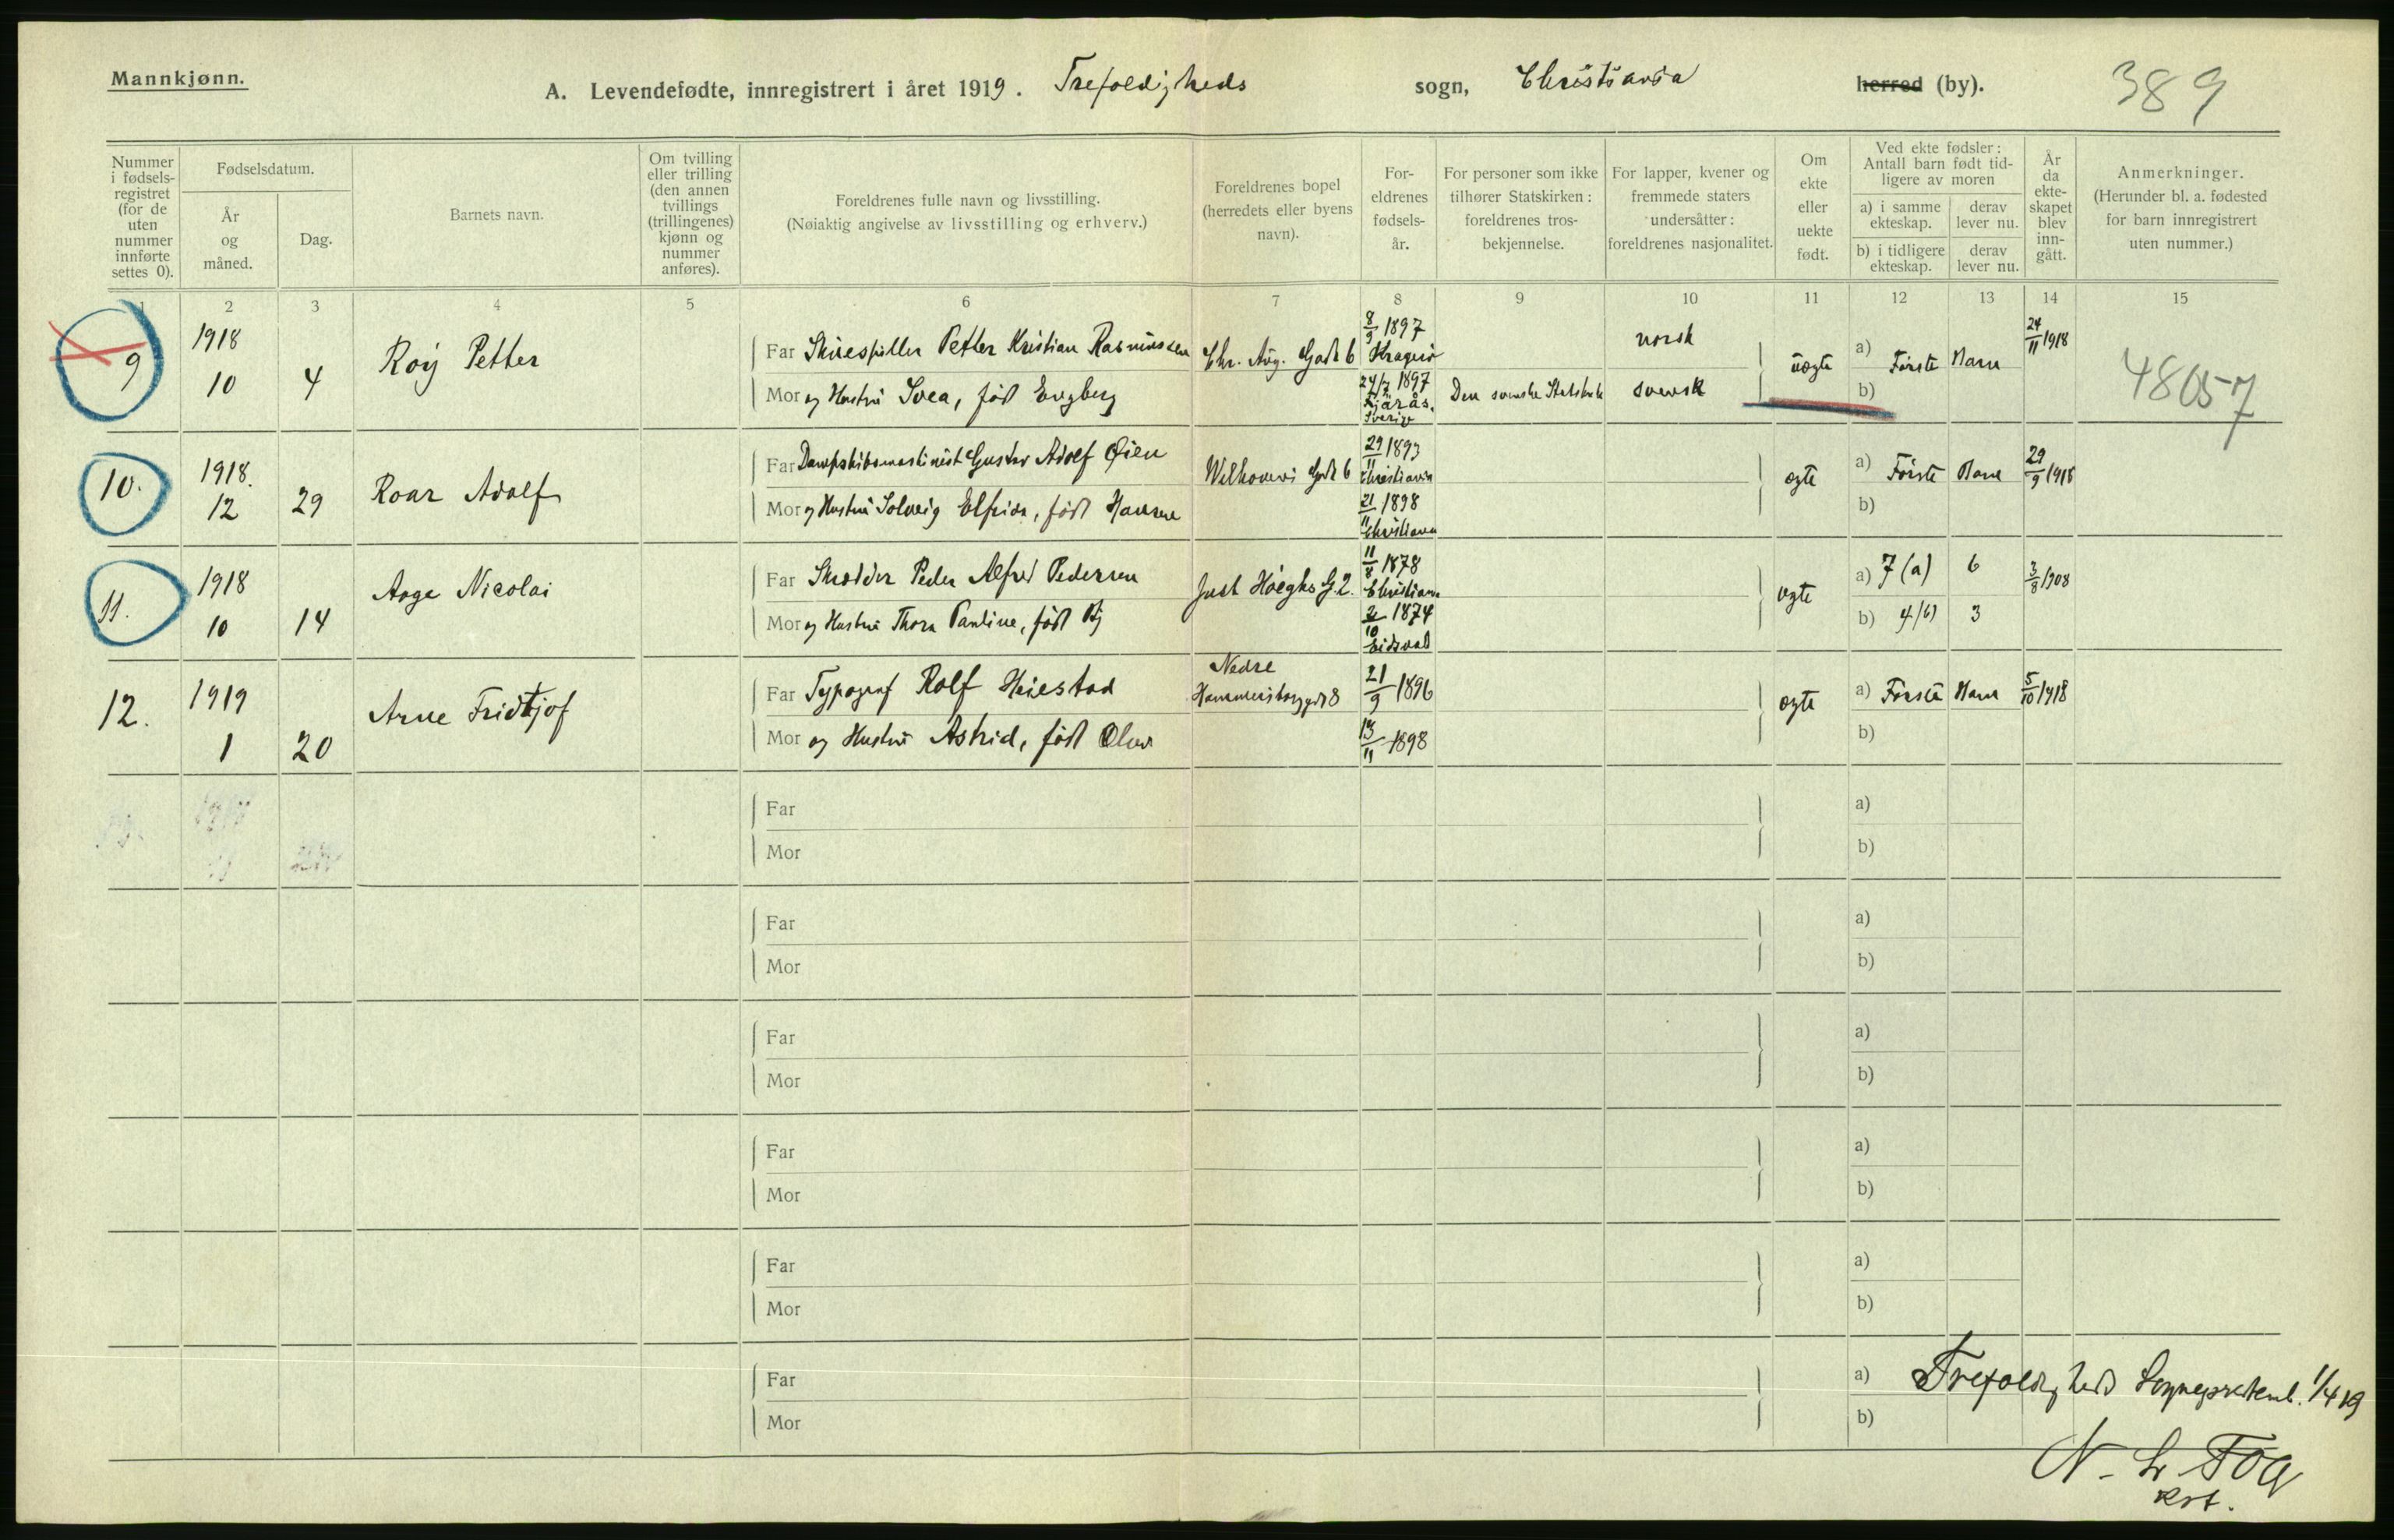 Mannkjønn.
A. Levendefødte, innregistrert i året 1919. Trefoldigheds sogn, Christiania herred (by). 389
Nummer i fødsels-registret (for de uten nummer innførte settes 0).
Fødselsdatum.
År og måned.
Dag.
Barnets navn.
Om tvilling eller trilling (den annen tvillings (trillingenes) kjønn og nummer anføres).
Foreldrenes fulle navn og livsstilling.
(Nøiaktig angivelse av livsstilling og erhverv.)
Foreldrenes bopel (herredets eller byens navn).
For-eldrenes fødsels-år.
For personer som ikke tilhører Statskirken: foreldrenes tros-bekjennelse.
For lapper, kvener og fremmede staters undersåtter: foreldrenes nasjonalitet.
Om ekte eller uekte født.
Ved ekte fødsler: Antall barn født tid-ligere av moren
a) i samme ekteskap.
derav lever nu.
b) i tidligere ekteskap.
derav lever nu.
År da ekte-skapet blev inn-gått.
Anmerkninger.
(Herunder bl. a. fødested for barn innregistrert uten nummer.)
1 2 3 4 5 6 7 8 9 10 11 12 13 14 15
9 1918 10 4 Roy Petter
Far Skuespiller Petter Kristian Rasmussen Chr. Aug. Gade 6 8/9 1897 Kragerø norsk
Mor og Hustru Svea, født Engberg 24/7 1897 Fjärås, Sverige Den svenske Statskirke svensk
uægte a) Første Barn b) 24/11 1918 48057
10. 1918. 12 29 Roar Adolf
Far Dampskibsmaskinist Gustav Adolf Øien Gade 6 29/11 1893 Christiania
Mor og Hustru Solveig Elfrida, født Hansen 21/11 1898 Christiania
ægte a) Første Barn b) 29/9 1918
11. 1918 10 14 Aage Nicolai
Far Skrædder Peder Alfred Pedersen Just Høeghs G. 2. 11/8 1878 Christiania
Mor og Hustru Thora Pauline, født 1874 Eidsvold
ægte a) 7 (a) 6 b) 4 (b) 3 3/8 1908
12. 1919 1 20 Arne Fridtjof
Far Typograf Rolf Heiestad Nedre 8 21/9 1896
Mor og Hustru Astrid, født Olsen 13/11 1898
ægte a) Første Barn b) 5/10 1918
Far a)
Mor b)
Far a)
Mor b)
Far a)
Mor b)
Far a)
Mor b)
Far a)
Mor b)
Far a)
Mor b)
Trefoldighed Sogneprestemb. 1/4 19